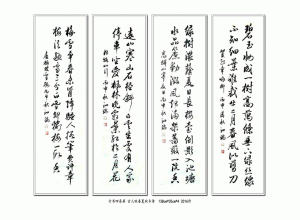 碧玉妝成一樹高萬條垂下綠絲絛
不知細葉誰裁出二月春風似剪刀
綠樹陰濃夏日長樓臺倒影入池塘
水晶簾動微風起滿架薔薇一院香
遠上寒山石徑斜白雲生處有人家
停車坐愛楓林晚霜葉紅於二月花
梅雪爭春未肯降騷人擱筆費評章
梅須遜雪三分白雪却輸梅一段香
行书四条屏 古人咏春夏秋冬诗 138cm*35cm*4 2016年